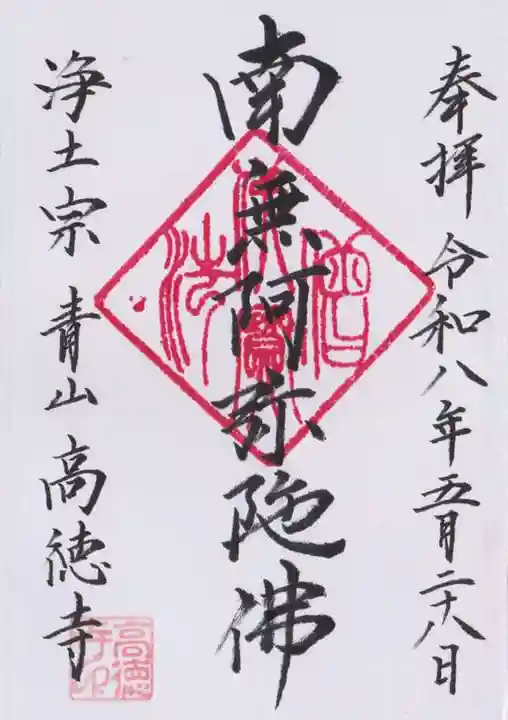 奉拝 令和八年五月二十八日
南無阿弥陀佛
浄土宗 青山 高徳寺
高德寺印